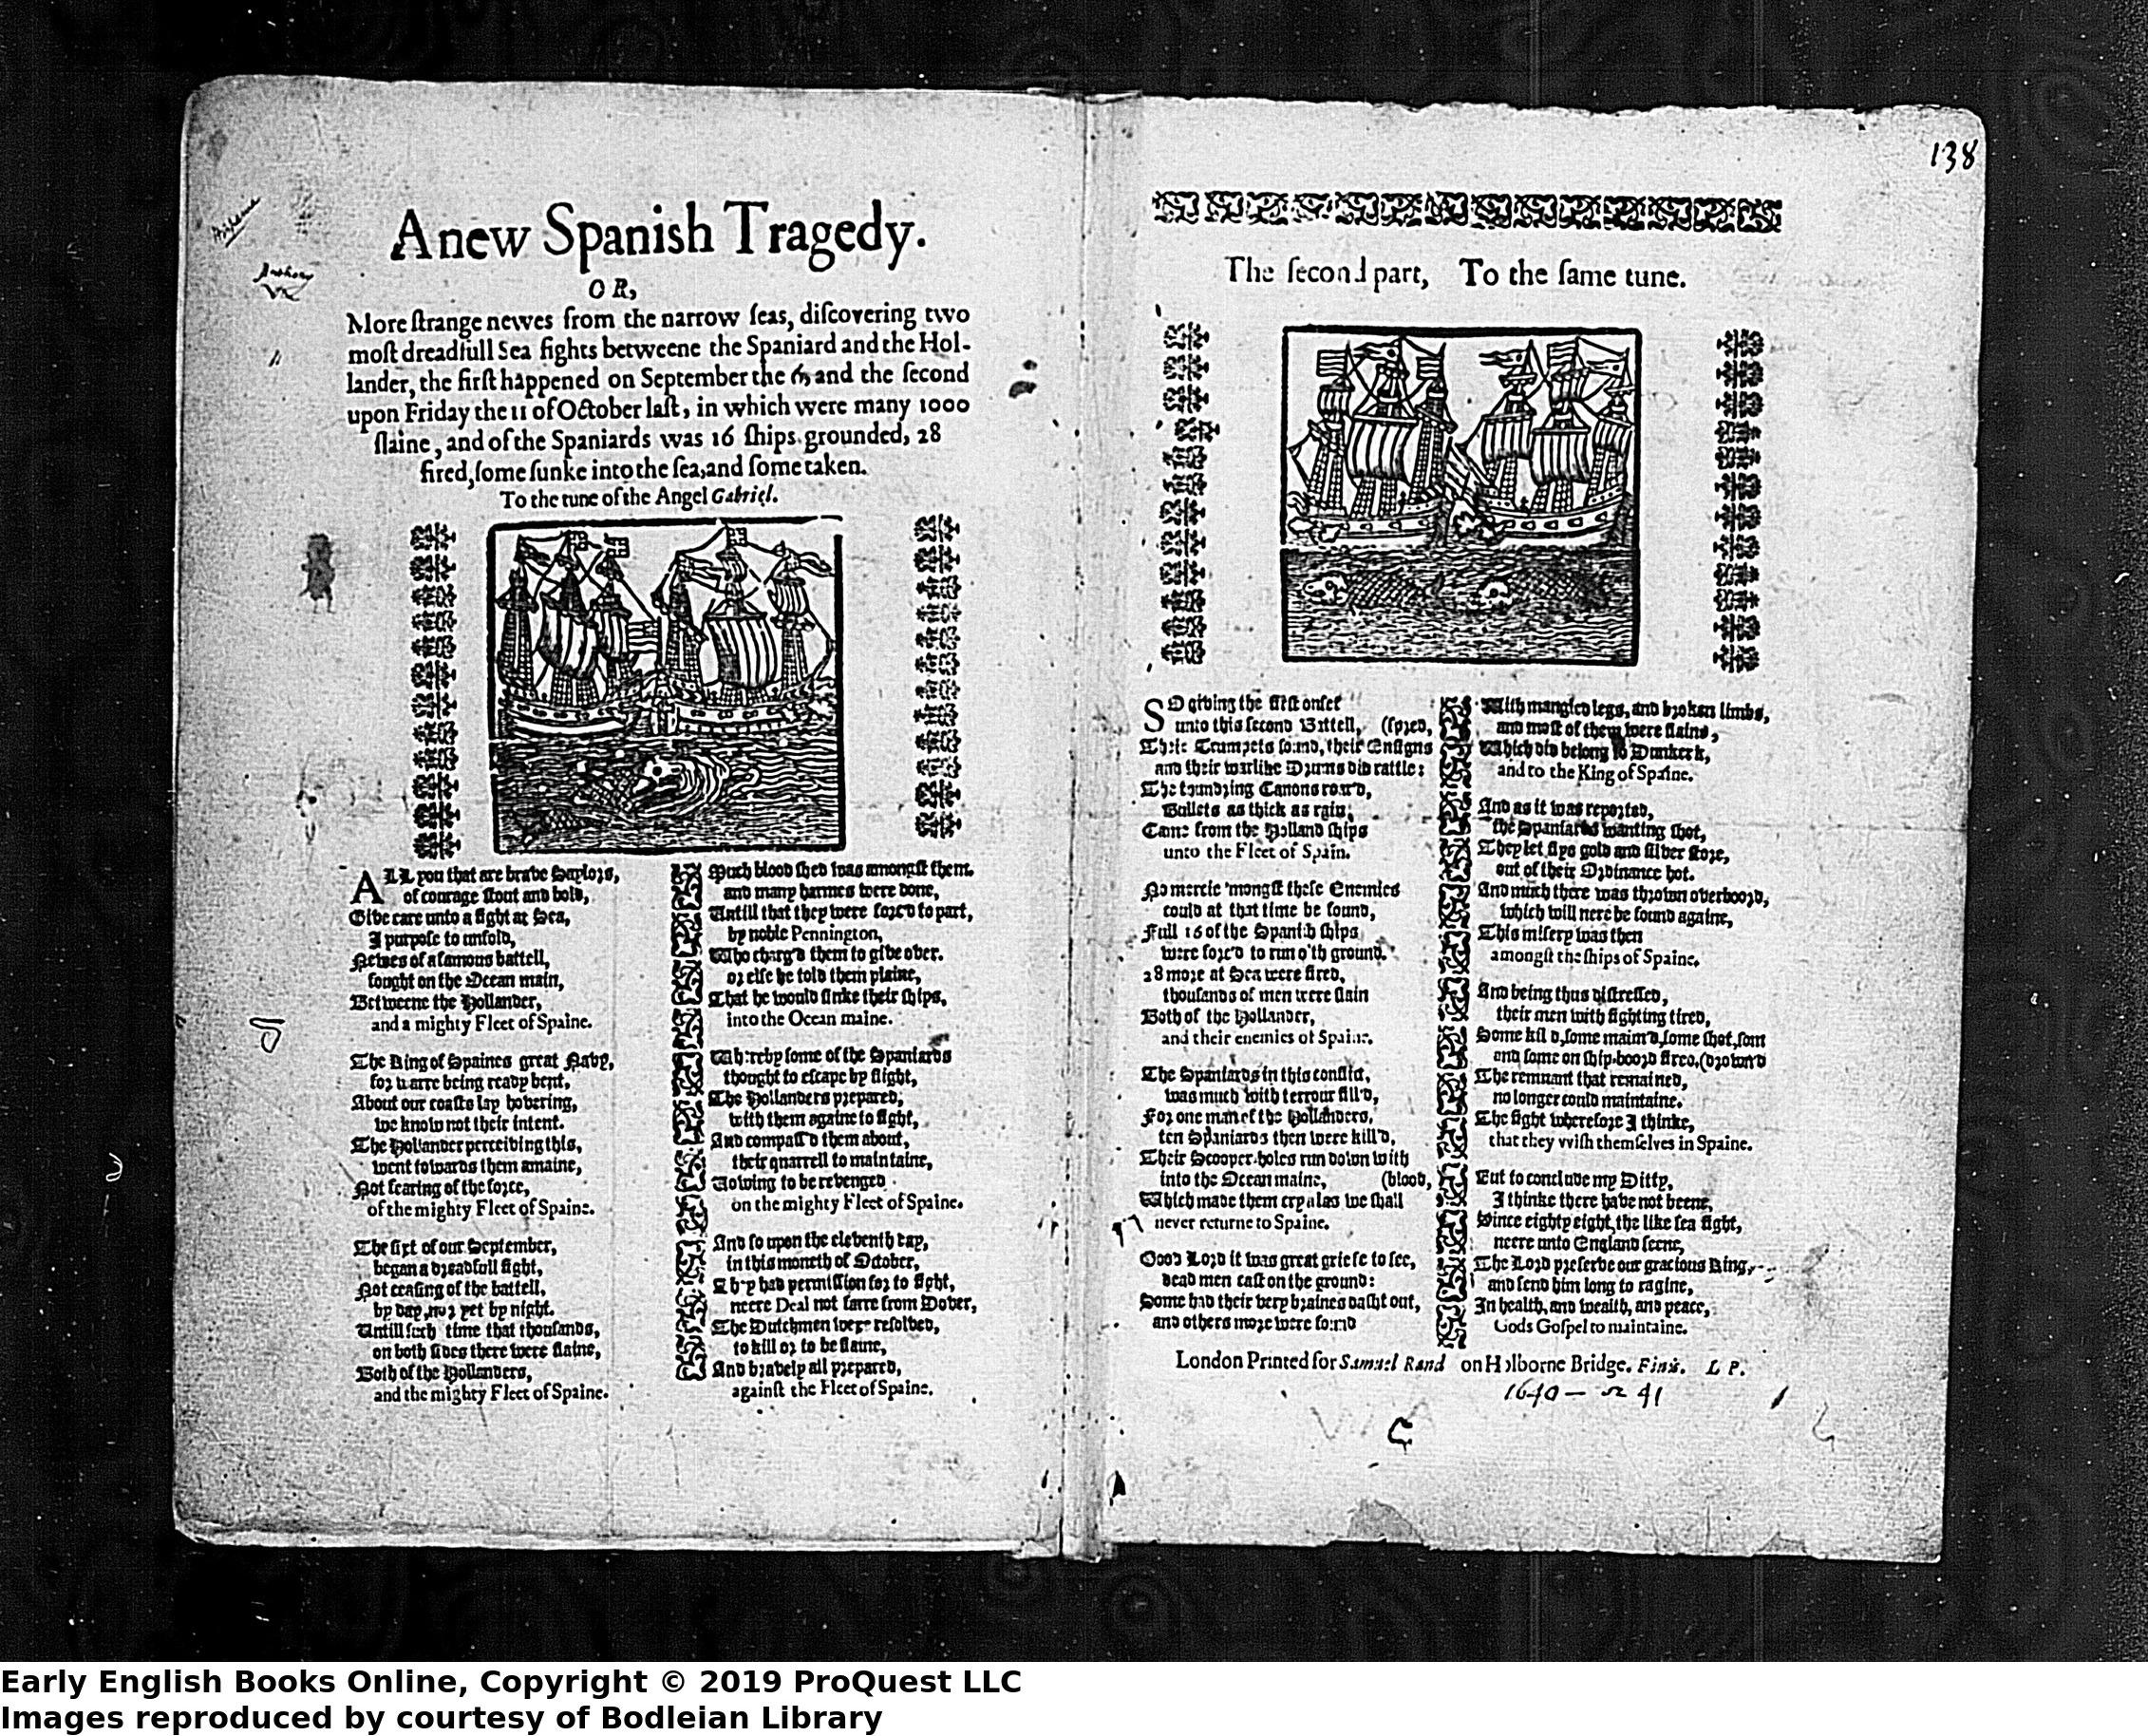 138
A new Spanish Tragedy.
OR,
More ſtrange newes from the narrow ſeas, diſcovering two
moſt dreadfull Sea fights betweene the Spaniard and the Hol-
lander, the firſt happened on September the and the ſecond
upon Friday the 11 of October laſt, in which were many 1000
ſlaine, and of the Spaniards was 16 ſhips grounded, 28
fired, ſome ſunke into the ſea, and ſome taken.
To the tune of the Angel Gabriel.
ALL you that are brave Saylors,
of courage ſtout and bold,
Give eare unto a fight at Sea,
I purpoſe to unfold,
Newes of a famous battell,
fought on the Ocean main,
Betweene the Hollander,
and a mighty Fleet of Spaine.
The King of Spaines great Navy,
for warre being ready bent,
About our coaſts lay hovering,
we know not their intent.
The Hollander perceiving this,
went towards them amaine,
Not fearing of the force,
of the mighty Fleet of Spaine.
The ſixt of our September,
began a dreadfull fight,
Not ceaſing of the battell,
by day, nor yet by night.
Untill ſuch time that thouſands,
on both ſides there were ſlaine,
Both of the Hollanders,
and the mighty Fleet of Spaine.
Much blood ſhed was amongſt them.
and many harmes were done,
Untill that they were forc'd to part,
by noble Pennington,
Who charg'd them to give over.
or elſe he told them plaine,
That he would ſinke their ſhips,
into the Ocean maine.
Whereby ſome of the Spaniards
thought to eſcape by flight,
The Hollanders prepared,
with them againe to fight,
And compaſſ'd them about,
their quarrell to maintaine,
Vowing to be revenged
on the mighty Fleet of Spaine.
And ſo upon the eleventh day,
in this moneth of October,
They had permiſſion for to fight,
neere Deal not farre from Dover,
The Dutchmen were reſolved,
to kill or to be ſlaine,
And bravely all prepared,
againſt the Fleet of Spaine.
The ſecond part, To the ſame tune.
SO giving the firſt onſet
unto this ſecond Battell, (ſpred,
Their Trumpets ſound, their Enſigns
and their warlike Drums did rattle:
The thundring Canons roar'd,
Bullets as thick as rain,
Came from the Holland ſhips
unto the Fleet of Spain.
No mercie 'mongſt theſe Enemies
could at that time be found,
Full 16 of the Spaniſh ſhips
were forc'd to run o'th ground.
28 more at Sea were fired,
thouſands of men were ſlain
Both of the Hollander,
and their enemies of Spaine.
The Spaniards in this conflict,
was much with terrour fill'd,
For one man of the Hollanders,
ten Spaniards then were kill'd,
Their Scooper-holes run down with
into the Ocean maine, (blood,
Which made them cry alas we ſhall
never returne to Spaine.
Good Lord it was great griefe to ſee,
dead men caſt on the ground:
Some had their very braines daſht out,
and others more were found
With mangled legs, and broken limbs,
and moſt of them were ſlaine,
Which did belong to Dunkerk,
and to the King of Spaine.
And as it was reported,
the Spaniards wanting ſhot,
They let flye gold and ſilver ſtore,
out of their Ordinance hot.
And much there was thrown overboord,
which will nere be found againe,
This miſery was then
amongſt the ſhips of Spaine.
And being thus diſtreſſed,
their men with fighting tired,
Some kil'd, ſome maim'd, ſome ſhot, ſom
and ſome on ſhip-boord fired, (drown'd
The remnant that remained,
no longer could maintaine.
The fight wherefore I thinke,
that they wiſh themſelves in Spaine.
But to conclude my Ditty,
I thinke there have not beene,
Since eighty eight, the like ſea fight,
neere unto England ſeene,
The Lord preſerve our gracious King,
and ſend him long to ragine,
In health, and wealth, and peace,
Gods Goſpel to maintaine.
London Printed for Samuel Rand on Holborne Bridge. Finis. L P.
Early English Books Online, Copyright © 2019 ProQuest LLC
Images reproduced by courtesy of Bodleian Library